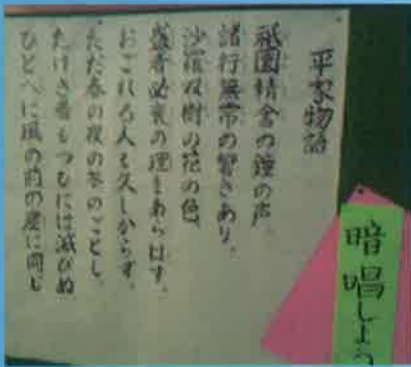 平家物語
祇園精舎の鐘の声、
諸行無常の響きあり。
沙羅双樹の花の色、
盛者必衰の理をあらはす。
おごれる人も久しからず。
ただ春の夜の夢のごとし。
たけき者もつひには滅びぬ
ひとへに風の前の塵に同じ
暗唱しよう